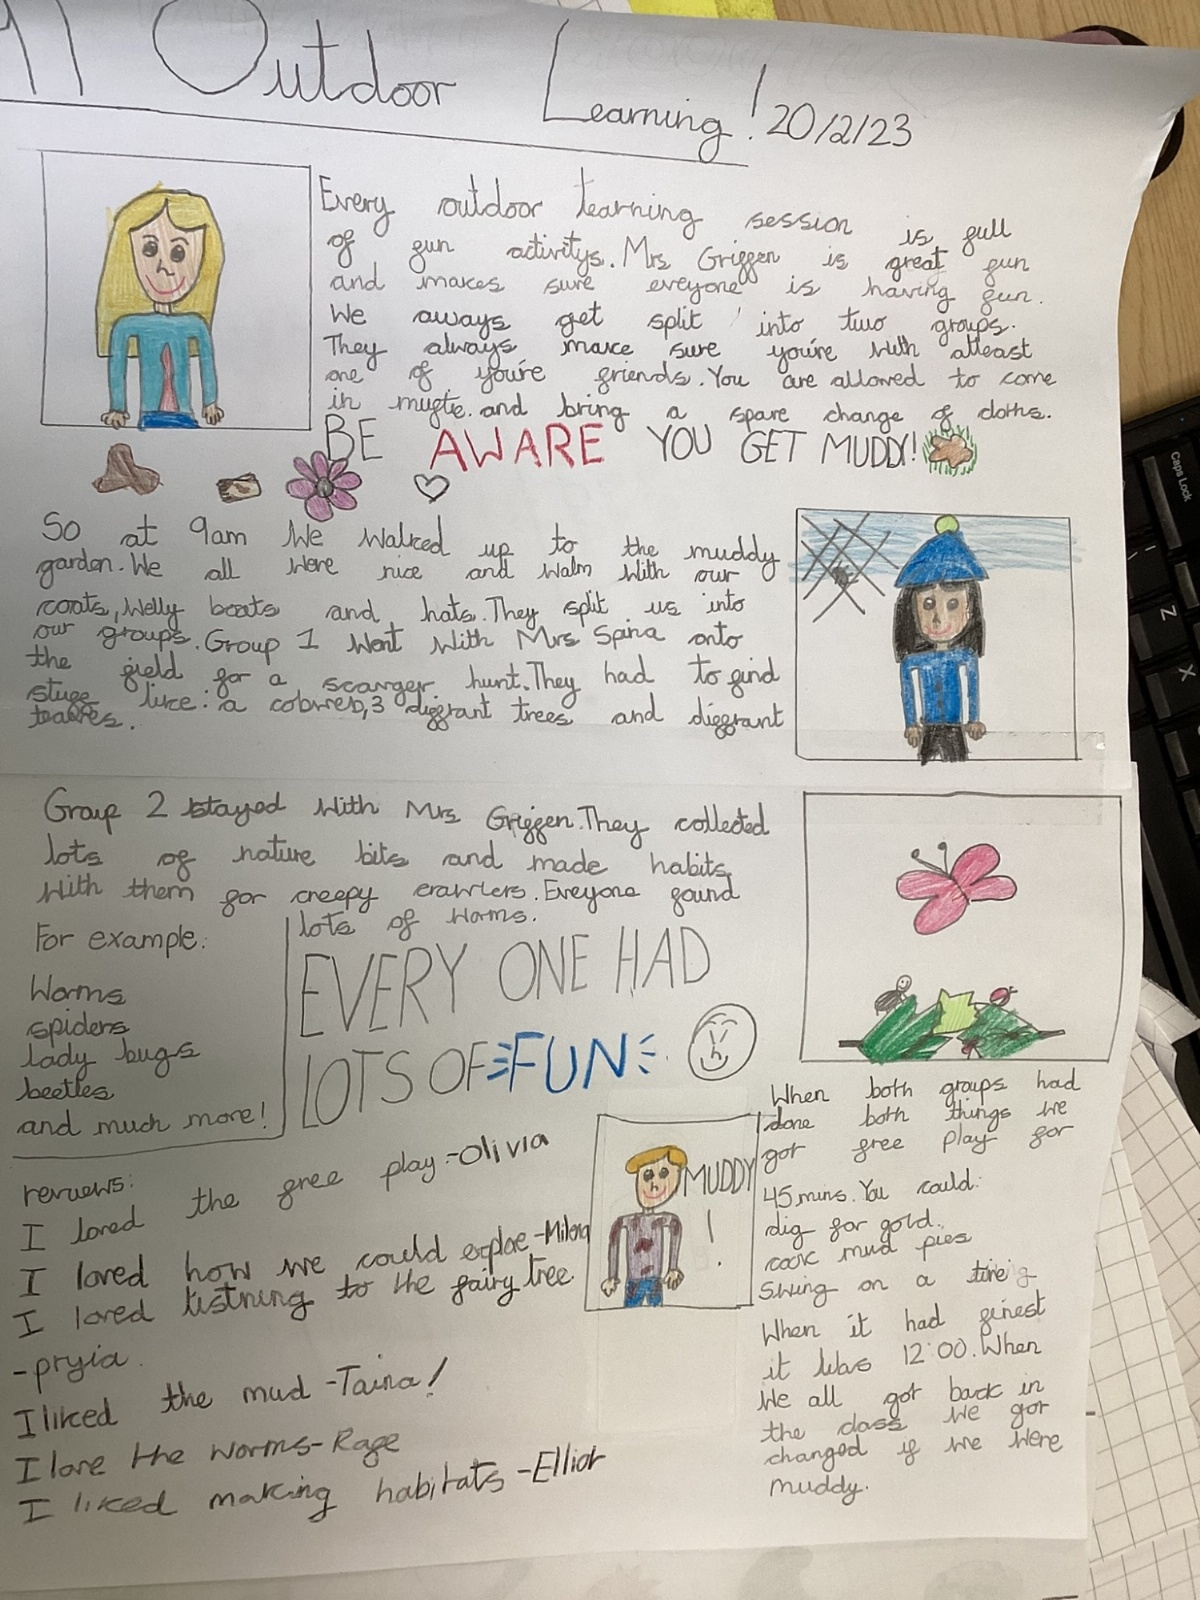 Outdoor Learning! 20/2/23
Every outdoor learning session is full
of fun activitys. Mrs Griffen is great fun
and makes sure eveyone is having fun.
We aways get split into two groups.
They always make sure you're with atleast
one of you're friends. You are allowed to come
in mufte. and bring a spare change of cloths.
BE AWARE YOU GET MUDDY!
So at 9am We Walked up to the muddy
garden. We all Were nice and Walm With our
coats, Welly boats and hats. They split us into
our groups. Group 1 Went With Mrs Spina onto
the field for a scavger hunt. They had to find
stuff like: a cobweb, 3 diffrant trees and diffrant
leaves.
Group 2 stayed With Mrs Griffen. They collected
lots of nature bits and made habits
With them for creepy crawlers. Eveyone found
lots of Worms.
For example:
Worms
spiders
lady bugs
beetles
and much more!
EVERY ONE HAD
LOTS OF FUN
MUDDY
!
When both groups had
done both things we
got free play for
45 mins. You could:
dig for gold.
cook mud pies
Swing on a tire
When it had finest
it Was 12:00. When
We all got back in
the class we got
changed if we Were
muddy.
reviews:
I loved the free play-Olivia
I loved how we could explore-
I loved listning to the fairy tree.
-pryia.
I liked the mud -Taina!
I love the worms-Rafe
I liked making habitats -Elliot